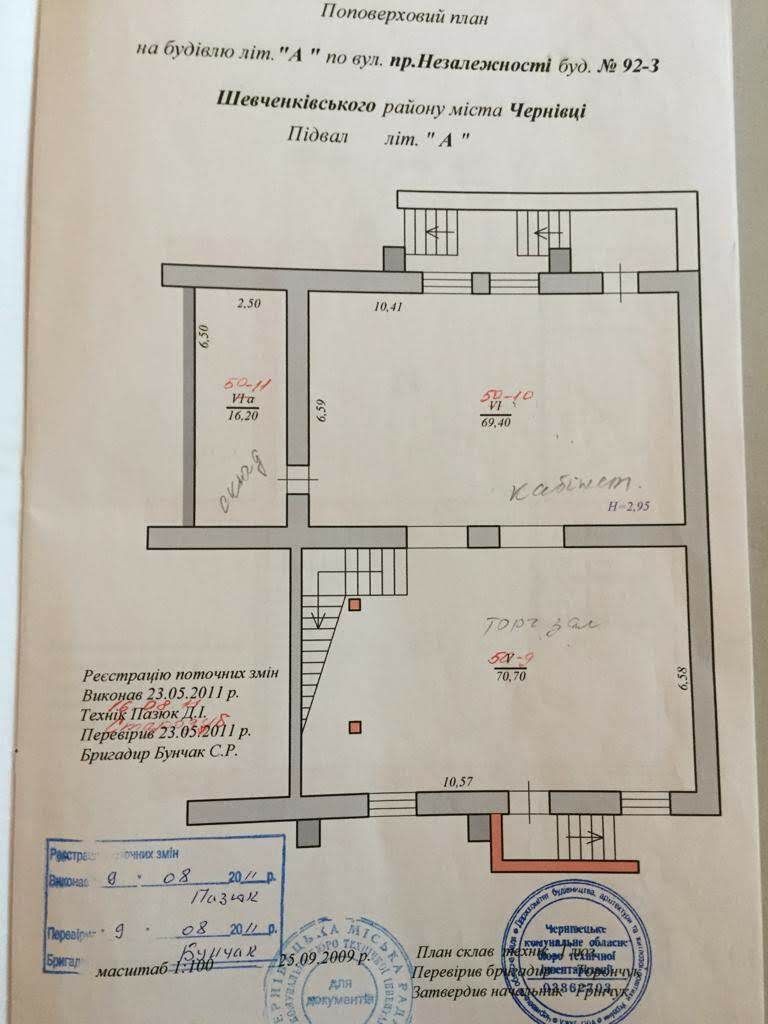 Поповерховий план
на будівлю літ."А " по вул. пр.Незалежності буд. № 92-3
Шевченківського району міста Чернівці
Підвал літ. " А "
2,50
10,41
6,50
50-11
VIа
16,20
6,59
50-10
VI
69,40
склад
кабінет.
H=2,95
торг зал
50-9
70,70
6,58
Реєстрацію поточних змін
Виконав 23.05.2011 р.
16 08 11
Технік Пазюк Д.І.
Перевірив 23.05.2011 р.
Бригадир Бунчак С.Р.
10,57
Реєстрац поточних змін
Виконав 9 " 08 2011 р.
Пазюк
Перевірив 9 08 2011 р.
Бригад Бунчак
масштаб 1:100
25.09.2009 р.
для
документів
План склав технік
Перевірив бригадир
Затвердив начальник Грінчук
Чернівецьке
комунальне обласне
бюро технічної
інвентаризації
03362703